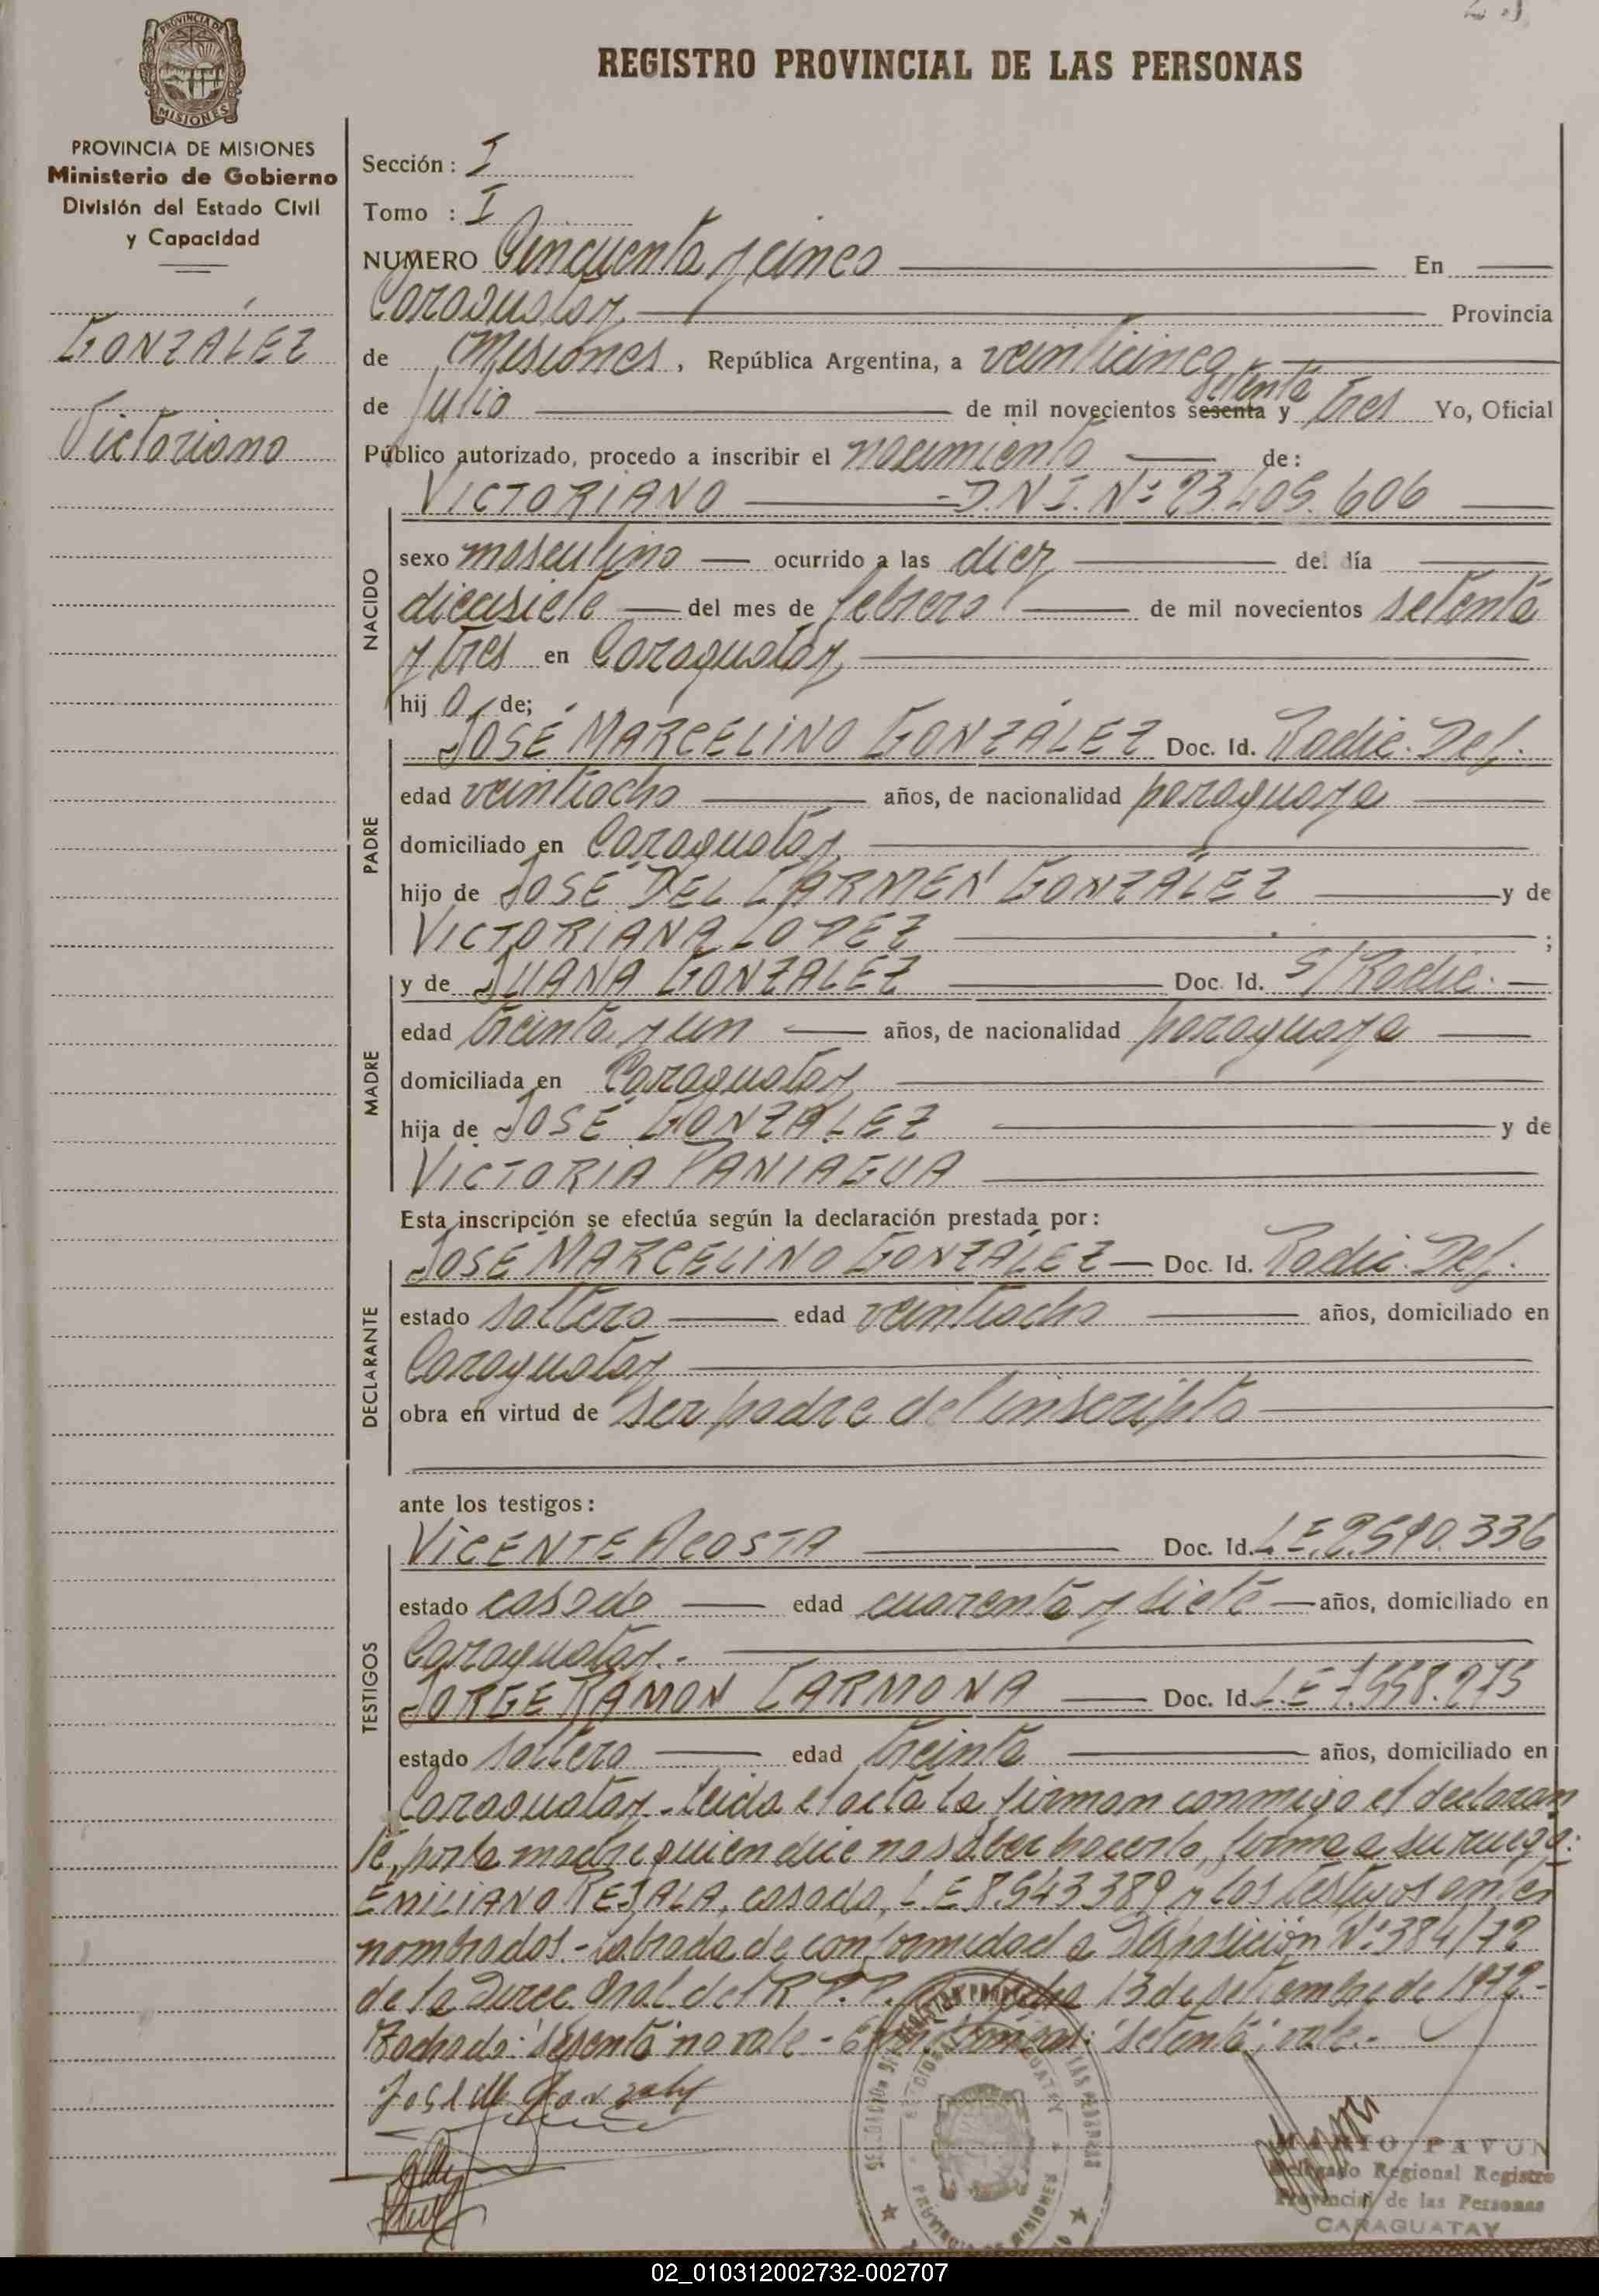 REGISTRO PROVINCIAL DE LAS PERSONAS
PROVINCIA DE MISIONES
Ministerio de Gobierno
División del Estado Civil
y Capacidad
GONZÁLEZ
Victoriano
Sección : I
Tomo : I
NUMERO Cincuenta y cinco En
Caraguatay Provincia
de Misiones, República Argentina, a veinticinco
setenta
de julio de mil novecientos sesenta y tres Yo, Oficial
Público autorizado, procedo a inscribir el nacimiento de:
VICTORIANO - D.N.I. Nº 23.409.606
NACIDO
sexo masculino ocurrido a las diez del día
diecisiete del mes de febrero de mil novecientos setenta
y tres en Caraguatay
hijo de;
PADRE
JOSÉ MARCELINO GONZÁLEZ Doc. Id. Radic. Def.
edad veintiocho años, de nacionalidad paraguaya
domiciliado en Caraguatay
hijo de JOSÉ DEL CARMEN GONZÁLEZ y de
VICTORIANA LOPEZ ;
MADRE
y de JUANA GONZALEZ Doc. Id. S/ Radic.
edad treinta y un años, de nacionalidad paraguaya
domiciliada en Caraguatay
hija de JOSÉ GONZALEZ y de
VICTORIA PANIAGUA
Esta inscripción se efectúa según la declaración prestada por:
DECLARANTE
JOSÉ MARCELINO GONZÁLEZ Doc. Id. Radic. Def.
estado soltero edad veintiocho años, domiciliado en
Caraguatay
obra en virtud de ser padre del inscripto
ante los testigos:
TESTIGOS
VICENTE ACOSTA Doc. Id. L.E. 2.590.336
estado casado edad cuarenta y siete años, domiciliado en
Caraguatay.-
JORGE RAMON CARMONA Doc. Id. L.E 7.558.275
estado soltero edad treinta años, domiciliado en
Caraguatay.- Leida el acta la firman conmigo el declaran
te, por la madre quien dice no saber hacerlo, firma a su ruego:
EMILIANO REJALA, casado, L E 8.543.389 y los testigos ante
nombrados.- Labrada de conformidad a Disposición Nº 384/72
de la Direc. Gral. del R.P.P. 13 de setiembre de 1972.-
Tachado: "sesenta" no vale - "setenta", vale.-
José M Gonzalez
MARIO PAVON
Delegado Regional Registro
Provincial de las Personas
CARAGUATAY
PROVINCIA DE MISIONES
02_010312002732-002707